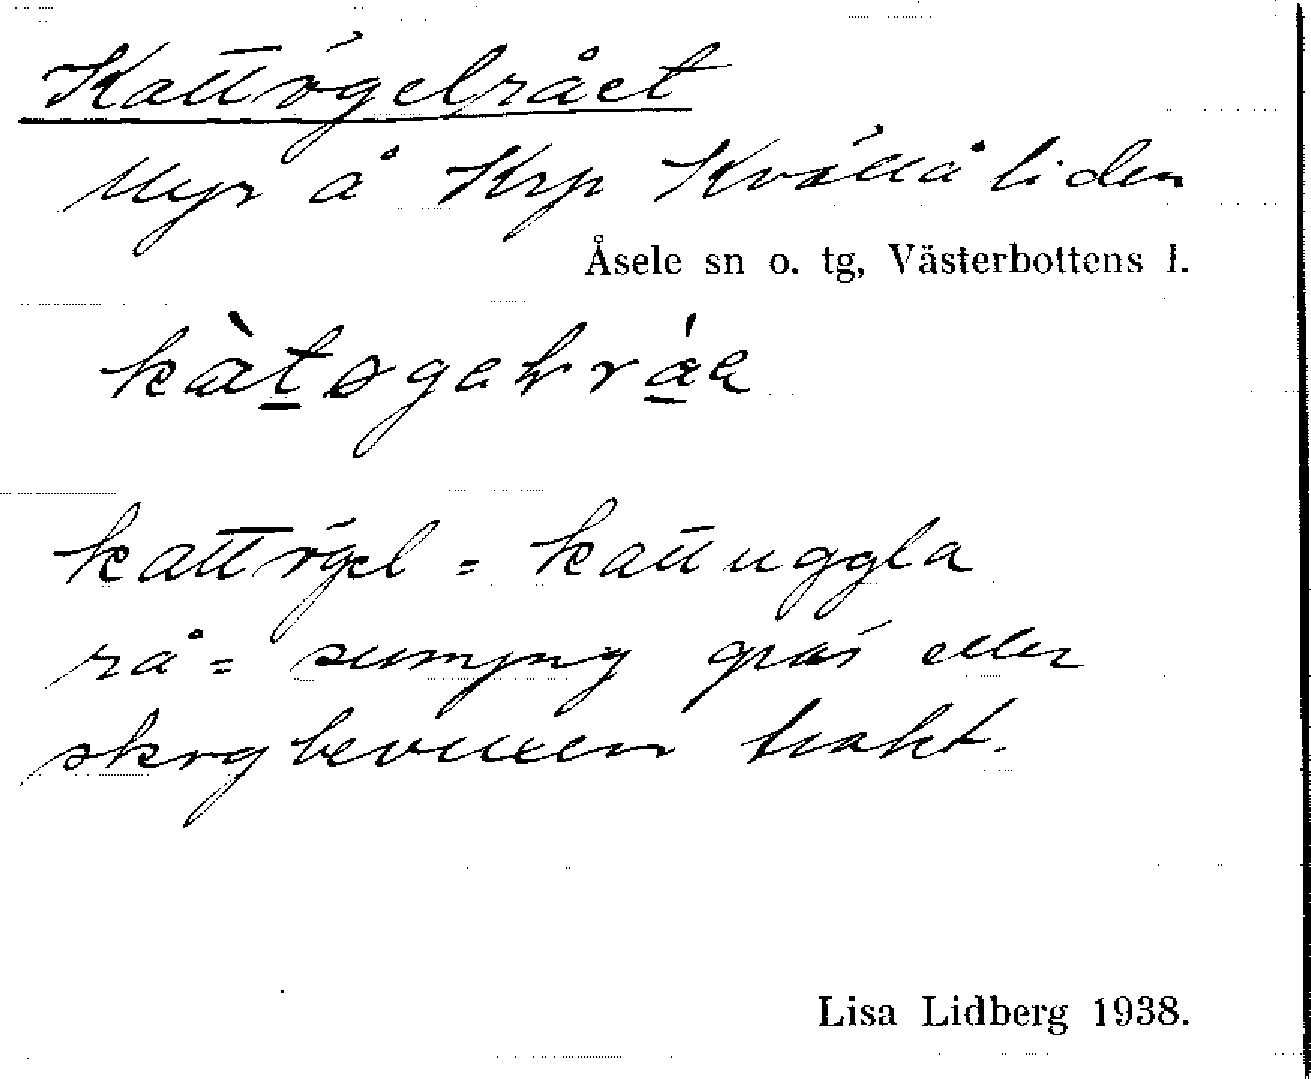 Kattögelrået
Myr å Krp Kvällåliden
Åsele sn o. tg, Västerbottens l.
kattögel = kattuggla
rå = sumpig gräs eller
skogbevuxen trakt.
Lisa Lidberg 1938.